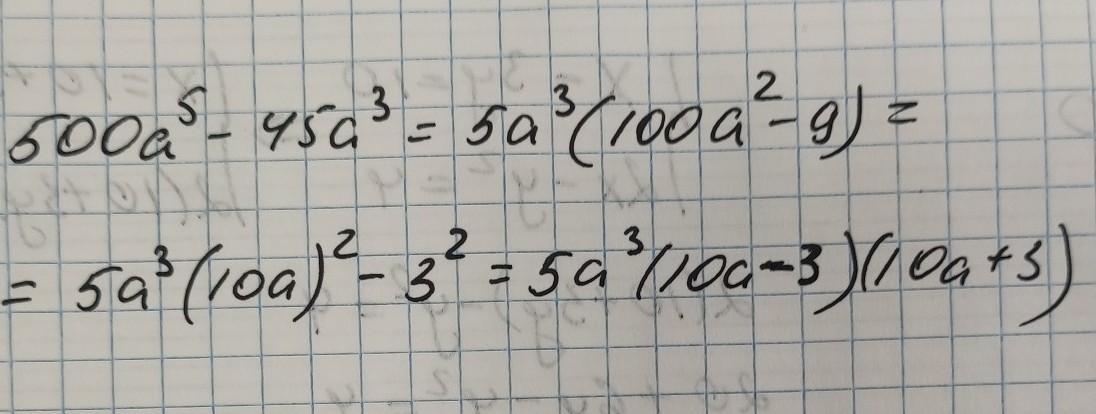 500a⁵ - 45a³ = 5a³(100a² - 9) =
= 5a³(10a)² - 3² = 5a³(10a - 3)(10a + 3)